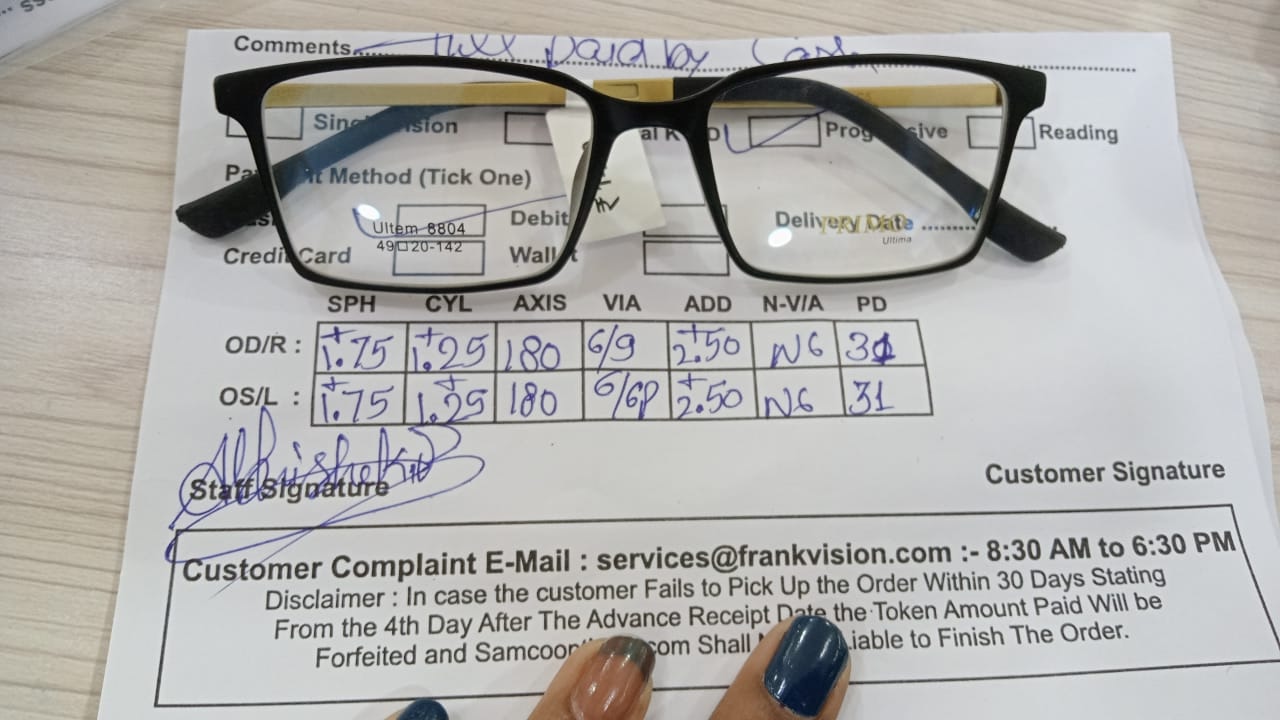 Comments..... full paid by Cash
Single Vision Progressive Reading
Payment Method (Tick One)
Debit Delivery Date .........
Ultem 8804 PRIMO
49□20-142 Ultima
Credit Card Wallet
SPH CYL AXIS VIA ADD N-V/A PD
OD/R : +1.75 +1.25 180 6/9 +2.50 N6 31
OS/L : +1.75 +1.25 180 6/6p +2.50 N6 31
Abhishek
Staff Signature Customer Signature
Customer Complaint E-Mail : services@frankvision.com :- 8:30 AM to 6:30 PM
Disclaimer : In case the customer Fails to Pick Up the Order Within 30 Days Stating
From the 4th Day After The Advance Receipt Date the Token Amount Paid Will be
Forfeited and com Shall liable to Finish The Order.